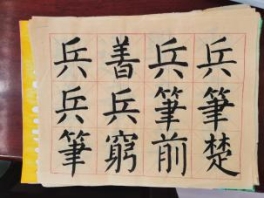 兵筆楚
兵筆前
善兵窮
兵兵筆